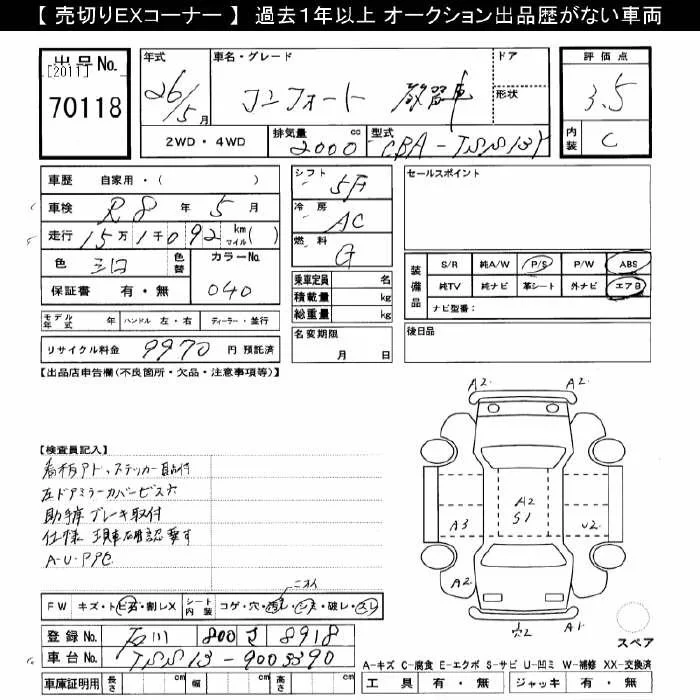 【 売切りEXコーナー 】 過去1年以上 オークション出品歴がない車両
出品No. [2011] 70118
年式 26/5月
車名・グレード コンフォート 教習車
ドア
形状
評価点 3.5
内装 C
2WD・4WD
排気量 2000 cc
型式 CBA-TSS13Y
車歴 自家用・( )
車検 R8年 5月
走行 15万1千092 km マイル( )
色 シロ 色替
カラーNo. 040
保証書 有・無
シフト 5F
冷房 AC
燃料 G
乗車定員 名
積載量 kg
総重量 kg
セールスポイント
装備品 S/R 純A/W P/S P/W ABS
純TV 純ナビ 革シート 外ナビ エアB
ナビ型番:
モデル年式 年 ハンドル 左・右 ディーラー・並行
名変期限 月 日
後日品
リサイクル料金 9970 円 預託済
【出品店申告欄(不良箇所・欠品・注意事項等)】
【検査員記入】
看板アト、ステッカー貼付
左ドアミラーカバービス穴
助手席ブレーキ取付
仕様 現車確認要す
A-U-PPC
A2 A2
A2
S1
A3 U2
A2
穴2 A1
ニオイ
FW キズ・トビ石・割レX シート内装 コゲ・穴・汚レ・シミ・破レ・スレ
登録No. 石川 800 さ 8918
車台No. TSS13-9003390
車庫証明用 長さ cm 幅 cm 高さ cm
スペア
A-キズ C-腐食 E-エクボ S-サビ U-凹ミ W-補修 XX-交換済
工具 有・無 ジャッキ 有・無